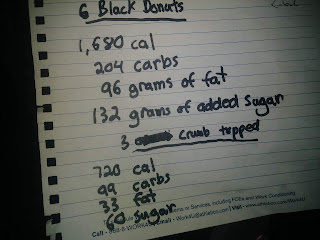 6 Black Donuts
1,680 cal
204 carbs
96 grams of fat
132 grams of added sugar
3 crumb topped
720 cal
99 carbs
33 fat
60 sugar
or Services, including FCEs and Work Conditioning
Call